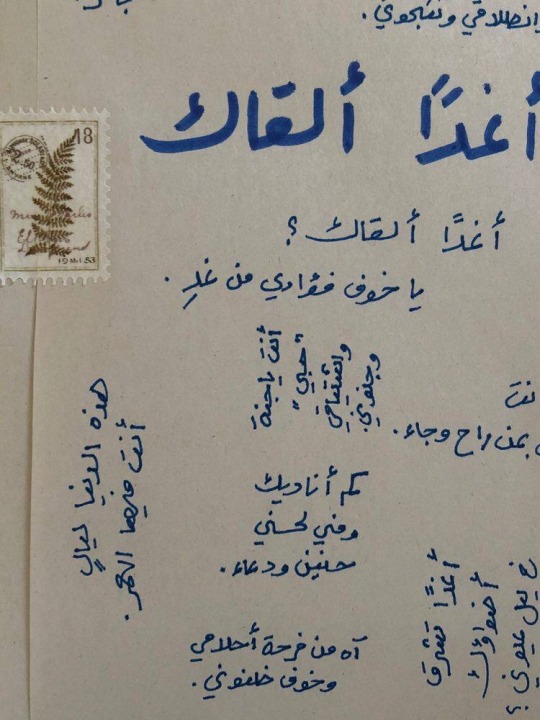 وانطلاقي
أغدًا ألقاك
أغدًا ألقاك؟
يا خوف فؤادي من غدِ.
أنت يا جنة
"حبي"
واشتياقي
وجنوني.
بمن راح وجاء.
هذه الدنيا ليالٍ
أنت فيها القمر.
كم أناديك
وفي لحني
حنين ودعاء.
أغدًا تشرق
أضواؤك
في ليل عيوني؟
آه من فرحة أحلامي
وخوف ظنوني.
18